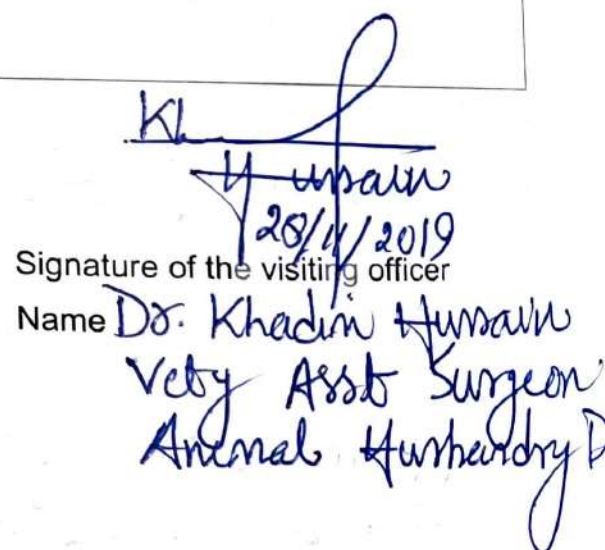 Kh
Hussain
28/11/2019
Signature of the visiting officer
Name Dr. Khadim Hussain
Vety Asst Surgeon
Animal Husbandry D